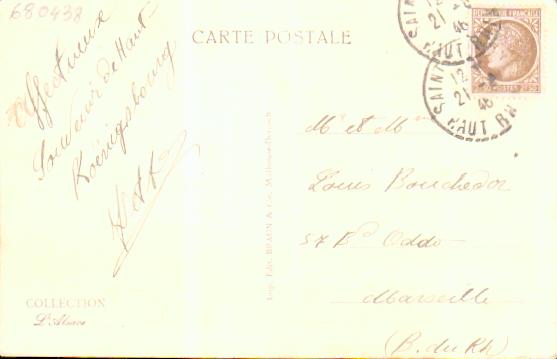 680438
CARTE POSTALE
Affectueux
Souvenir de Haut
Koenigsbourg
SAINT
12
21 - 46
HAUT RHIN
SAINT
12
21 - 46
HAUT RH
POSTES 2F50
Mr et Mme
Louis Bouchedor
57 Bd Oddo
Marseille
(B. du Rh)
Imp. Edit. BRAUN & Cie, Mulhouse-Dornach
COLLECTION
L'Alsace